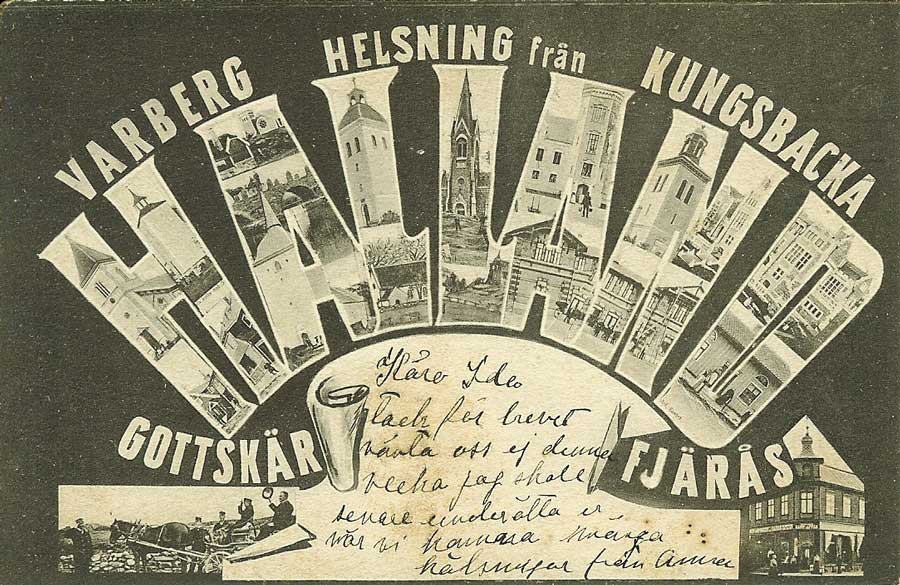 HELSNING från
VARBERG
KUNGSBACKA
HALLAND
GOTTSKÄR
FJÄRÅS
Kära Ida
tack för brevet
vänta oss ej denna
vecka jag skall
senare underätta er
när vi komma många
hälsningar från Anna